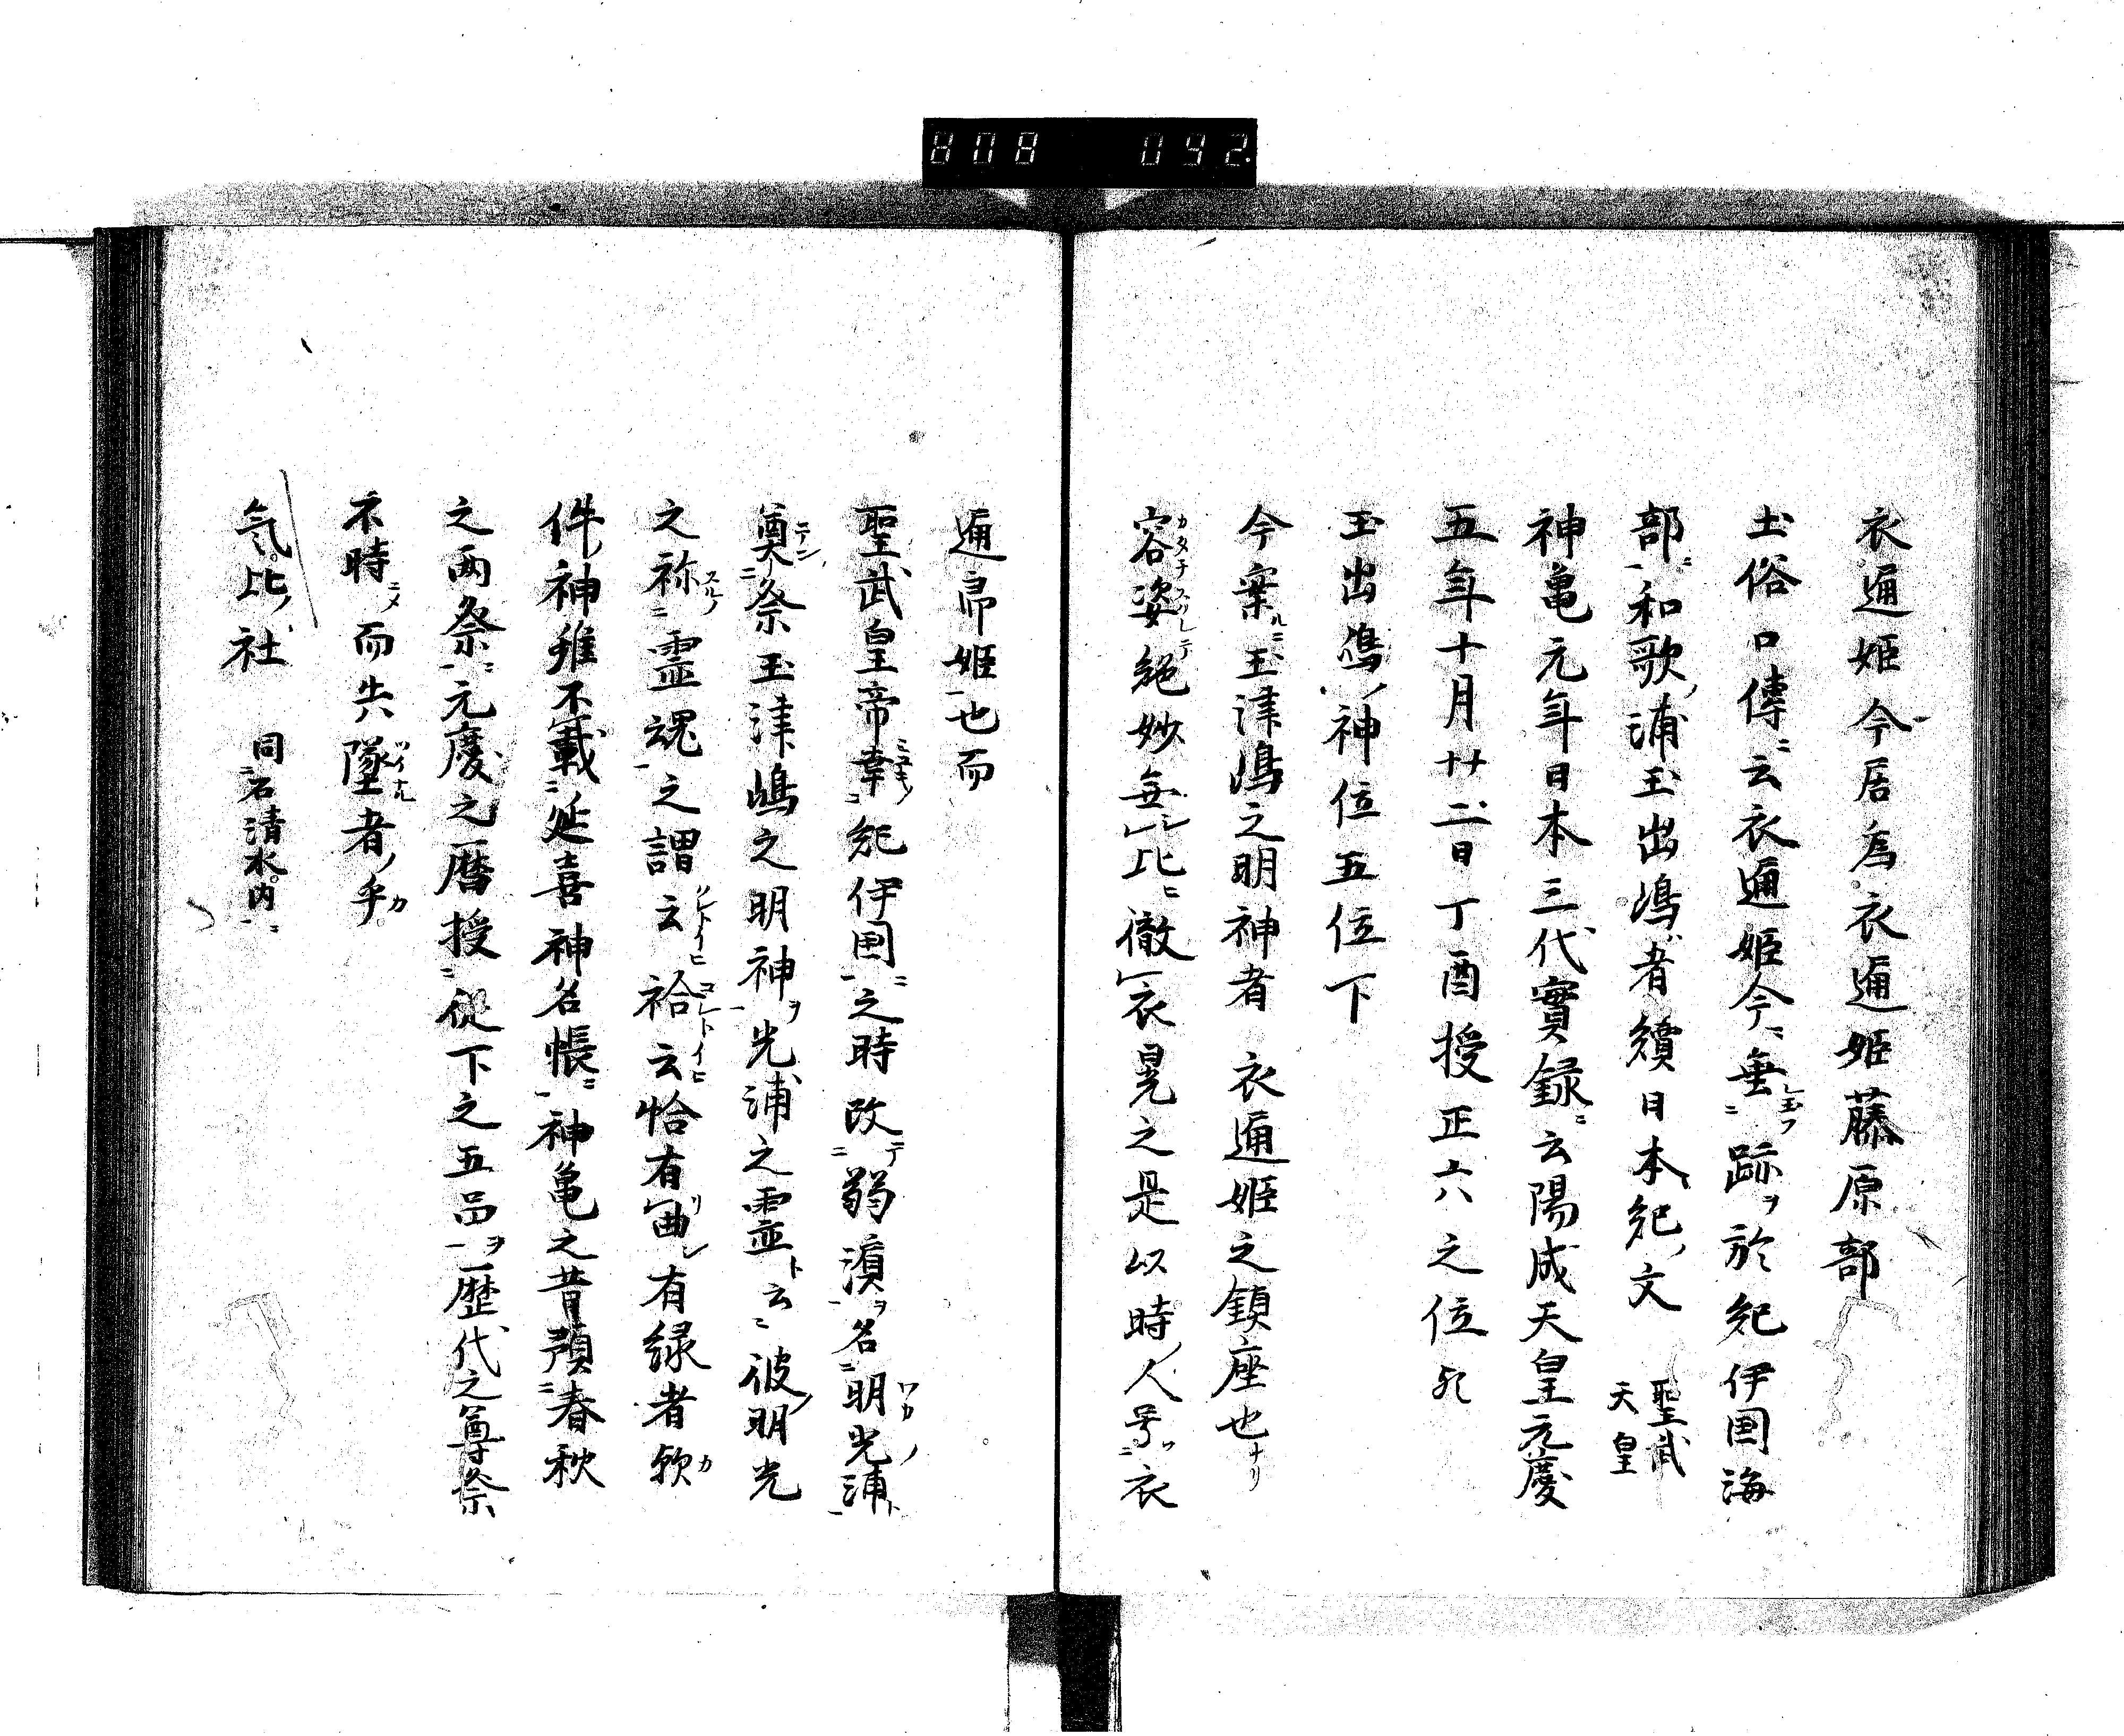 衣通姫今居為衣通姫藤原部
土俗口傳云衣通姫今垂跡ヲ於紀伊国海
部和歌浦玉出嶋者續日本紀文 聖武天皇
神亀元年日本三代實録云陽成天皇元慶
五年十月廿二日丁酉授正六之位
玉出嶋神位五位下
今案玉津嶋之明神者 衣通姫之鎮座也
容姿絶妙無比徹衣晃之是以時人号衣
通帚姫也而
聖武皇帝幸紀伊国之時改弱濱ヲ名明光浦
奠祭玉津嶋之明神ヲ光浦之霊ト云彼明光
之祢霊魂之謂云袷云恰有曲有縁者歟
件神雖不載延喜神名帳神亀之昔預春秋
之両祭元慶之暦授従下之五品ヲ歴代之尊祭
不時而失墜者乎
気比社 同石清水内
808 092